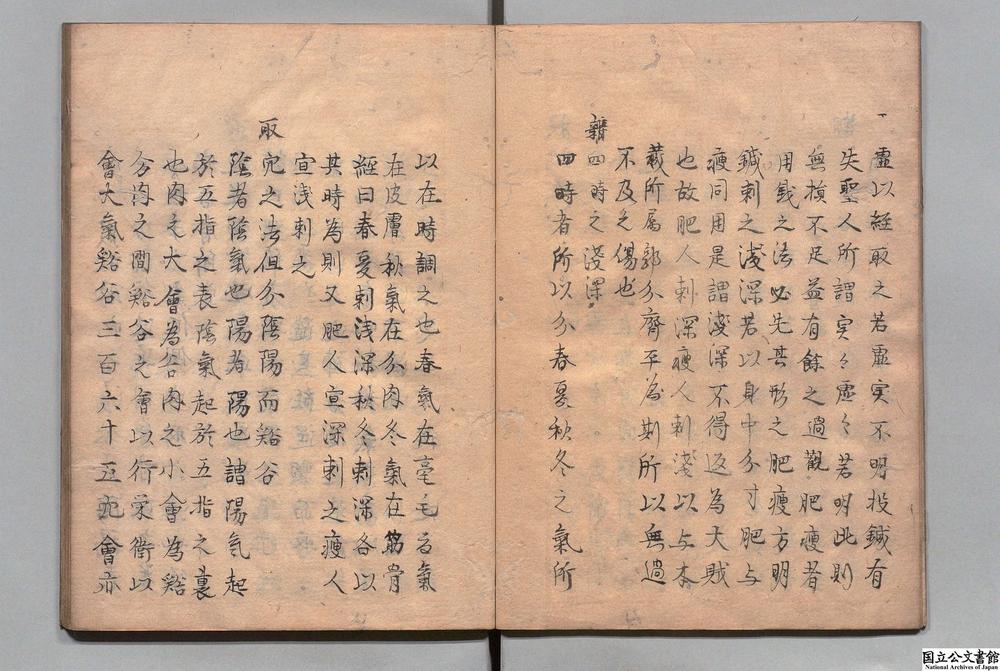 虚以経取之若虚実不明投鍼有
失聖人所謂実々虚々若明此則
無損不足益有餘之過観肥瘦者
用鍼之法必先其形之肥瘦方明
鍼刺之浅深若以身中分寸肥与
瘦同用是謂浅深不得返為大賊
也故肥人刺深瘦人刺浅以与本
蔵所属郭分齊平為期所以無過
不及之傷也
辨四時之浅深
四時者所以分春夏秋冬之氣所
以在時調之也春氣在毫毛夏氣
在皮膚秋氣在分肉冬氣在筋骨
経曰春夏刺浅深秋冬刺深各以
其時為則又肥人宣深刺之瘦人
宣浅刺之
取穴之法但分陰陽而谿谷
陰者陰氣也陽者陽也謂陽気起
於五指之表陰氣起於五指之裏
也肉之大會為谷肉之小會為谿
分肉之間谿谷之會以行栄衛以
會大氣谿谷三百六十五穴會亦
国立公文書館
National Archives of Japan